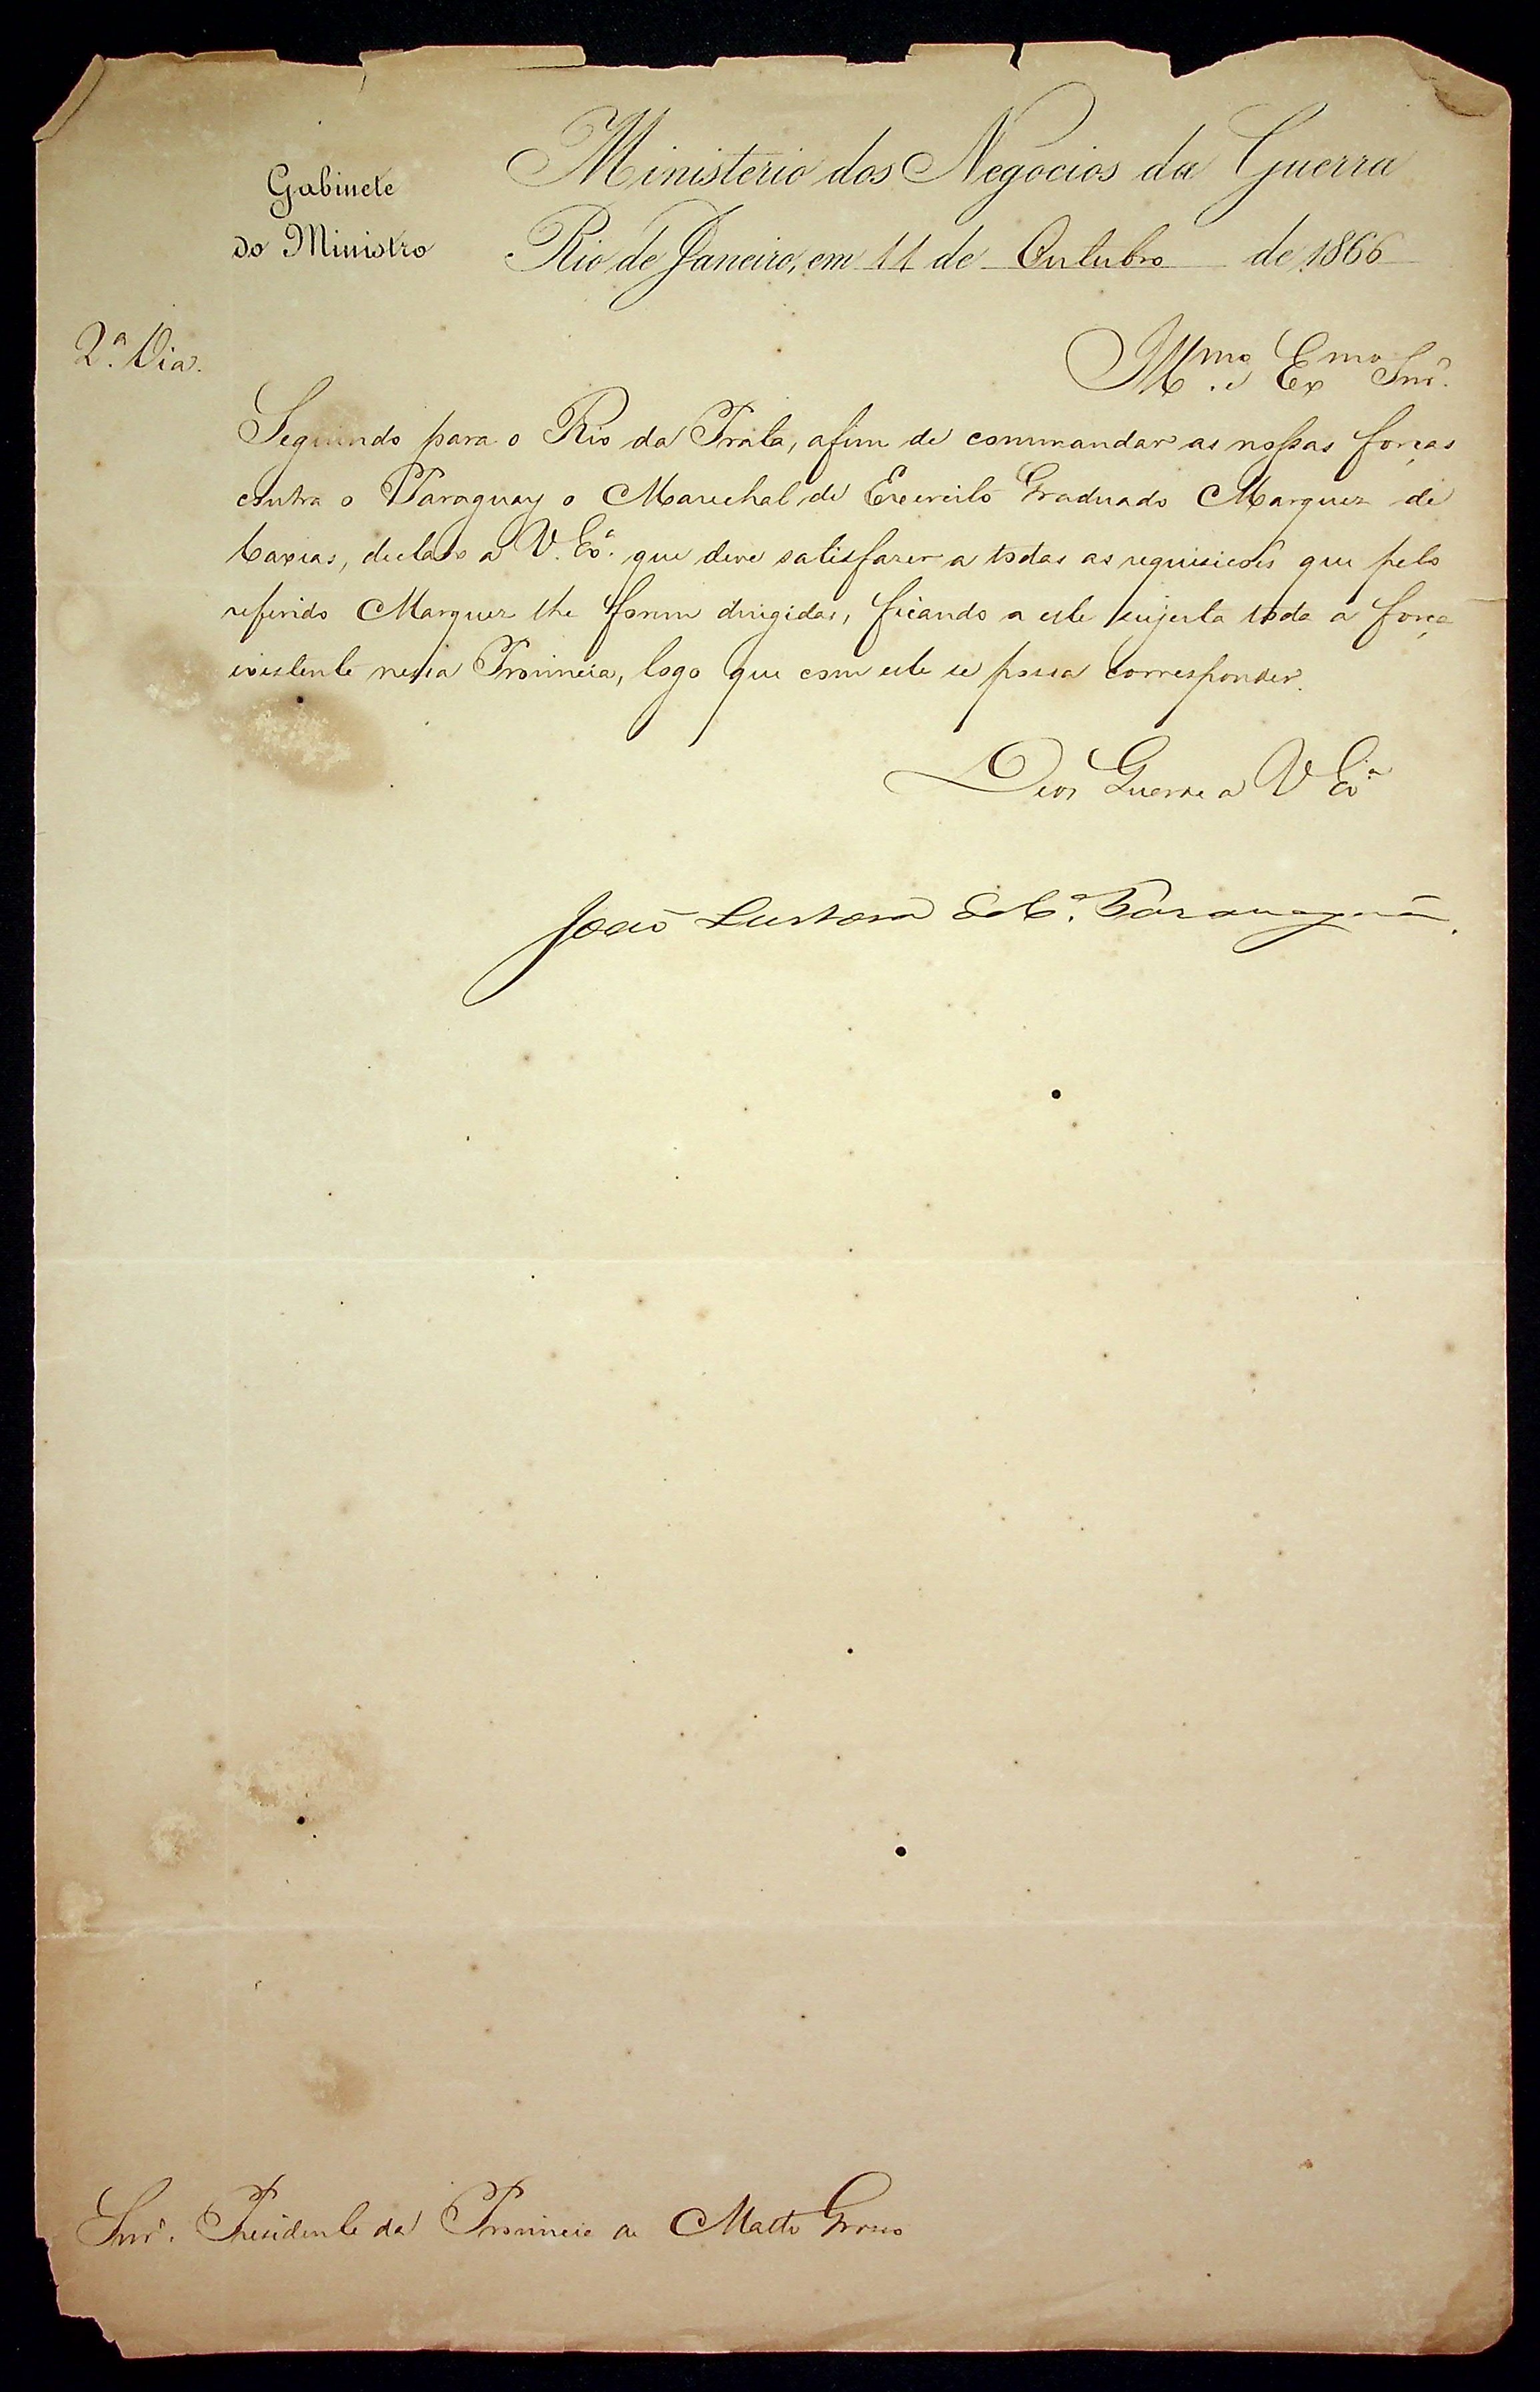 Gabinete
do Ministro
Ministerio dos Negocios da Guerra
Rio de Janeiro, em 11 de Outubro de 1866
2.ª Via.
Illmo. e Exmo Snr.
Seguindo para o Rio da Prata, afim de commandar as nossas forças
contra o Paraguay o Marechal de Exercito Graduado Marquez de
Caxias, declaro a V. Exª. que deve satisfazer a todas as requisicoẽs que pelo
referido Marquez lhe forem dirigidas, ficando a este sujeita toda a força
existente nessa Provincia, logo que com este se possa corresponder.
Deos Guarde a V Exª
João Lustosa da Cª. Paranaguá.
Snr. Presidente da Provincia de Matto Grosso